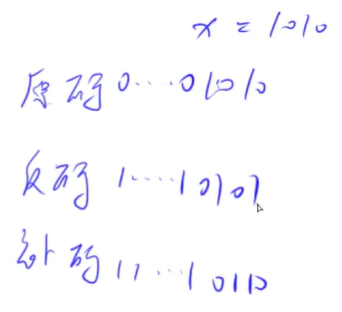 x = 1010
原码 0····01010
反码 1·····10101
补码 11···10110